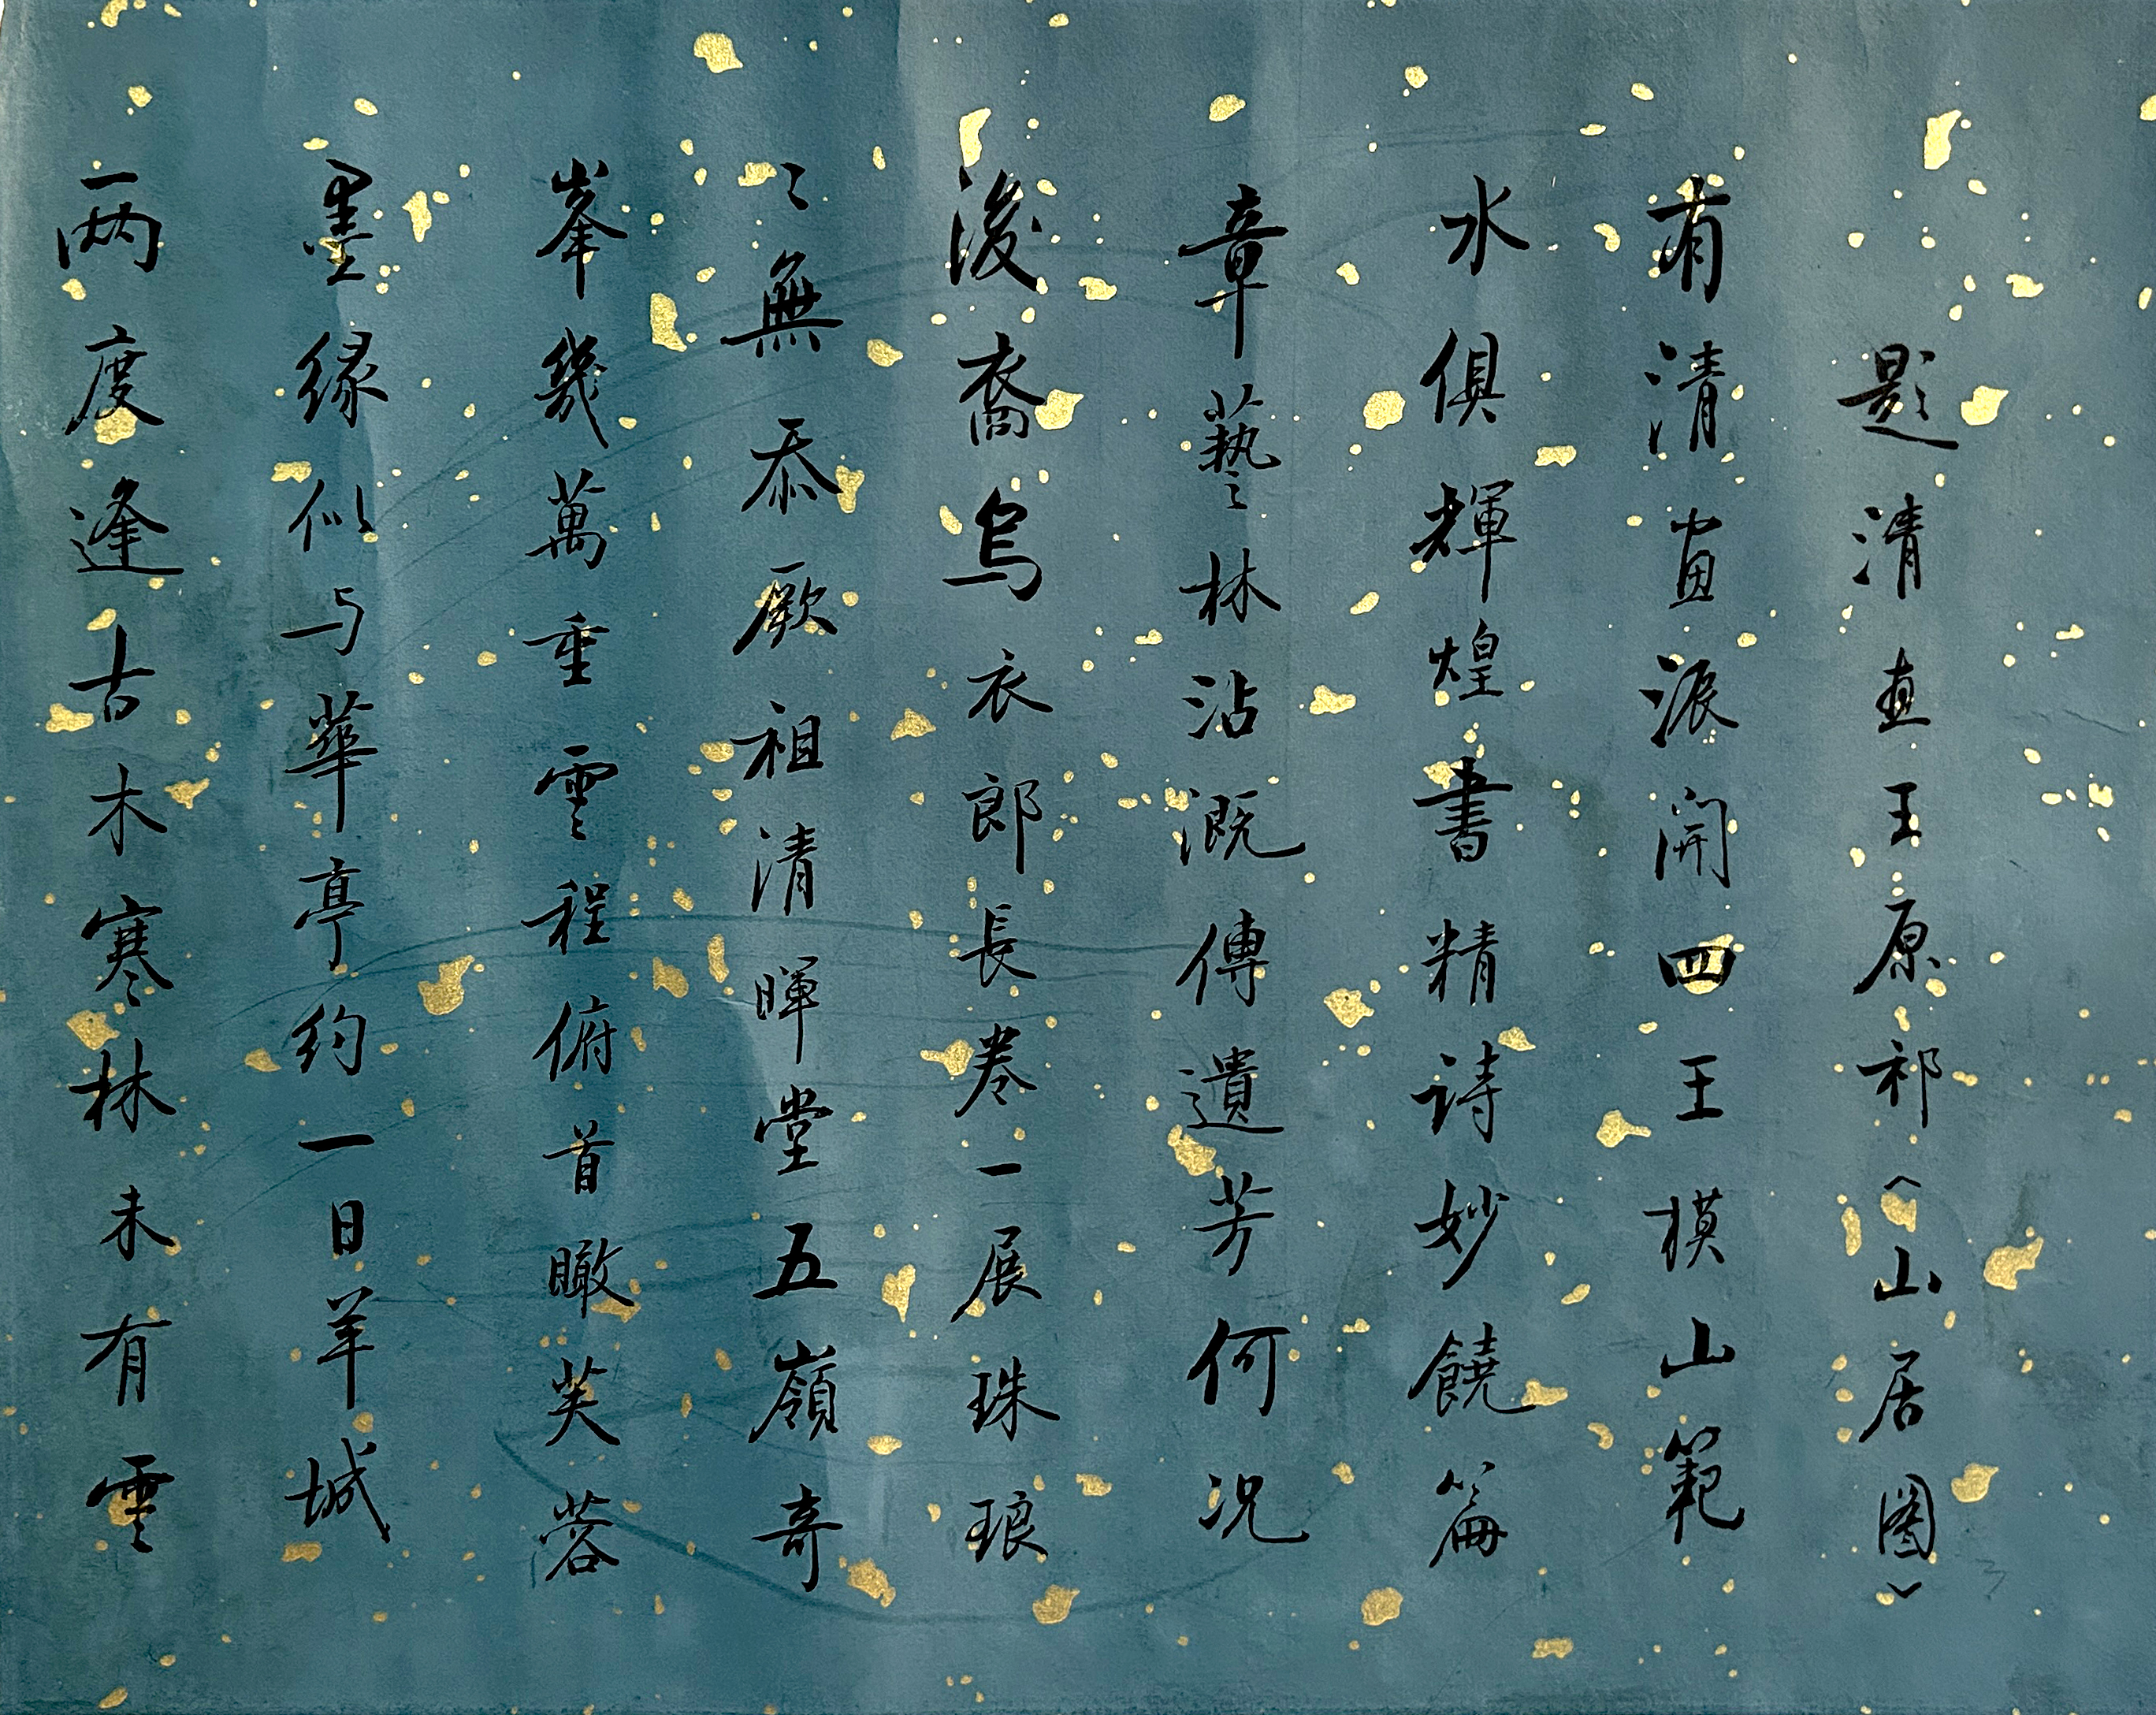 題清畫王原祁︿山居圖﹀
有清畫派開四王模山範
水俱輝煌書精诗妙饒篇
章藝林沾溉傳遺芳何况
後裔烏衣郎長卷一展珠琅
〻無忝厥祖清暉堂五嶺奇
峯幾萬重雲程俯首瞰芙蓉
墨緣似与華亭约一日羊城
兩度逢古木寒林未有雲